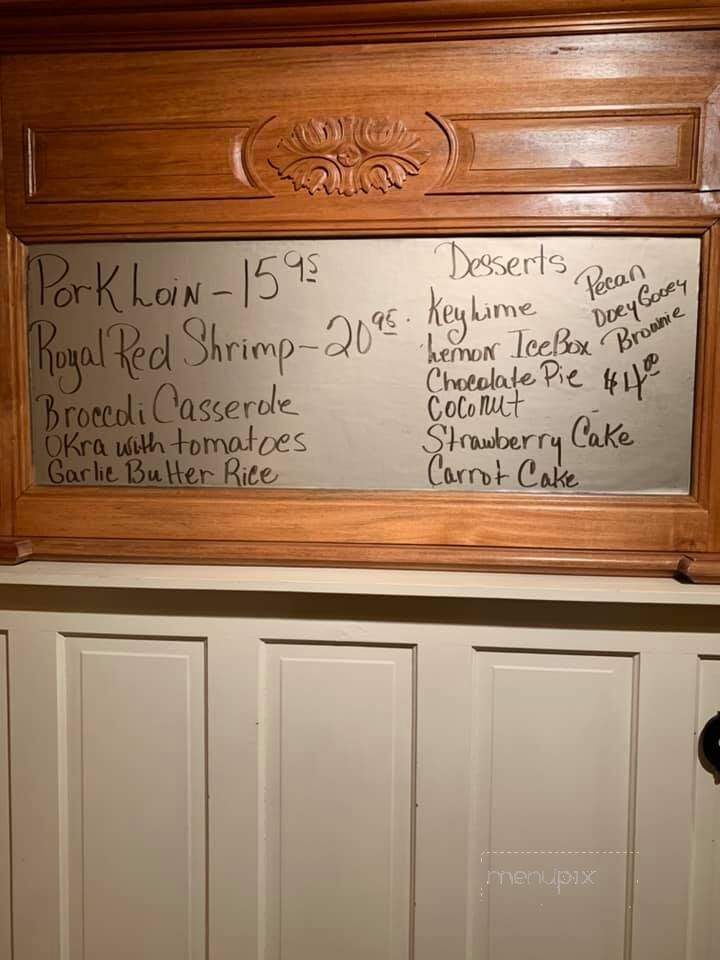 Pork Loin - 15 95
Royal Red Shrimp - 20 95.
Broccoli Casserole
Okra with tomatoes
Garlic Butter Rice
Desserts
Key Lime
Lemon IceBox
Chocolate Pie
Coconut
Strawberry Cake
Carrot Cake
Pecan
Ooey Gooey
Brownie
$4 00
menupix